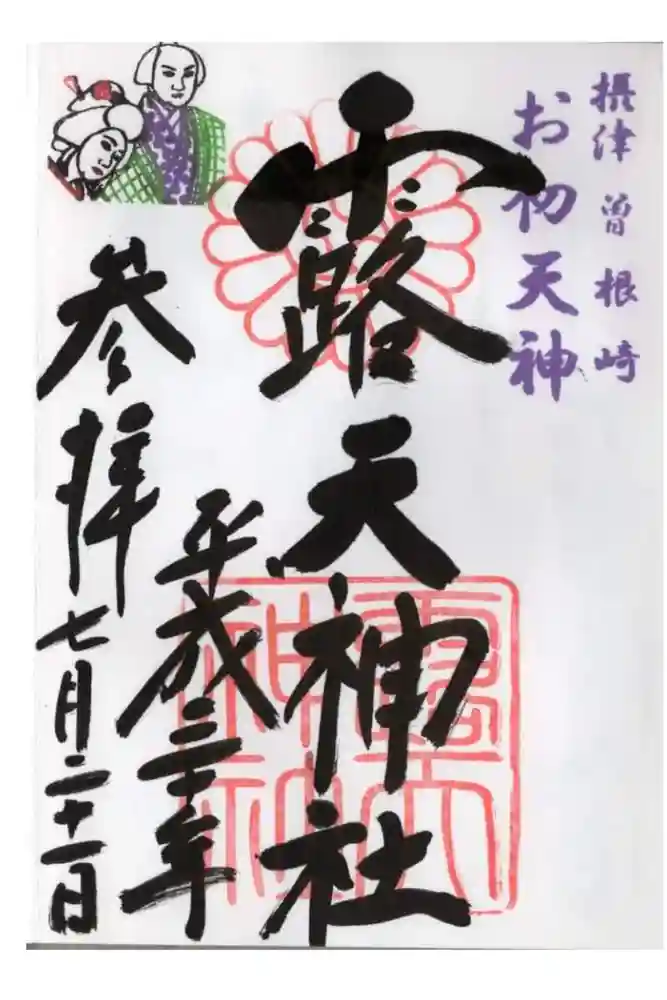 摂津 曽根崎
お初天神
露天神社
平成三十年
参拝 七月二十一日
露天神社